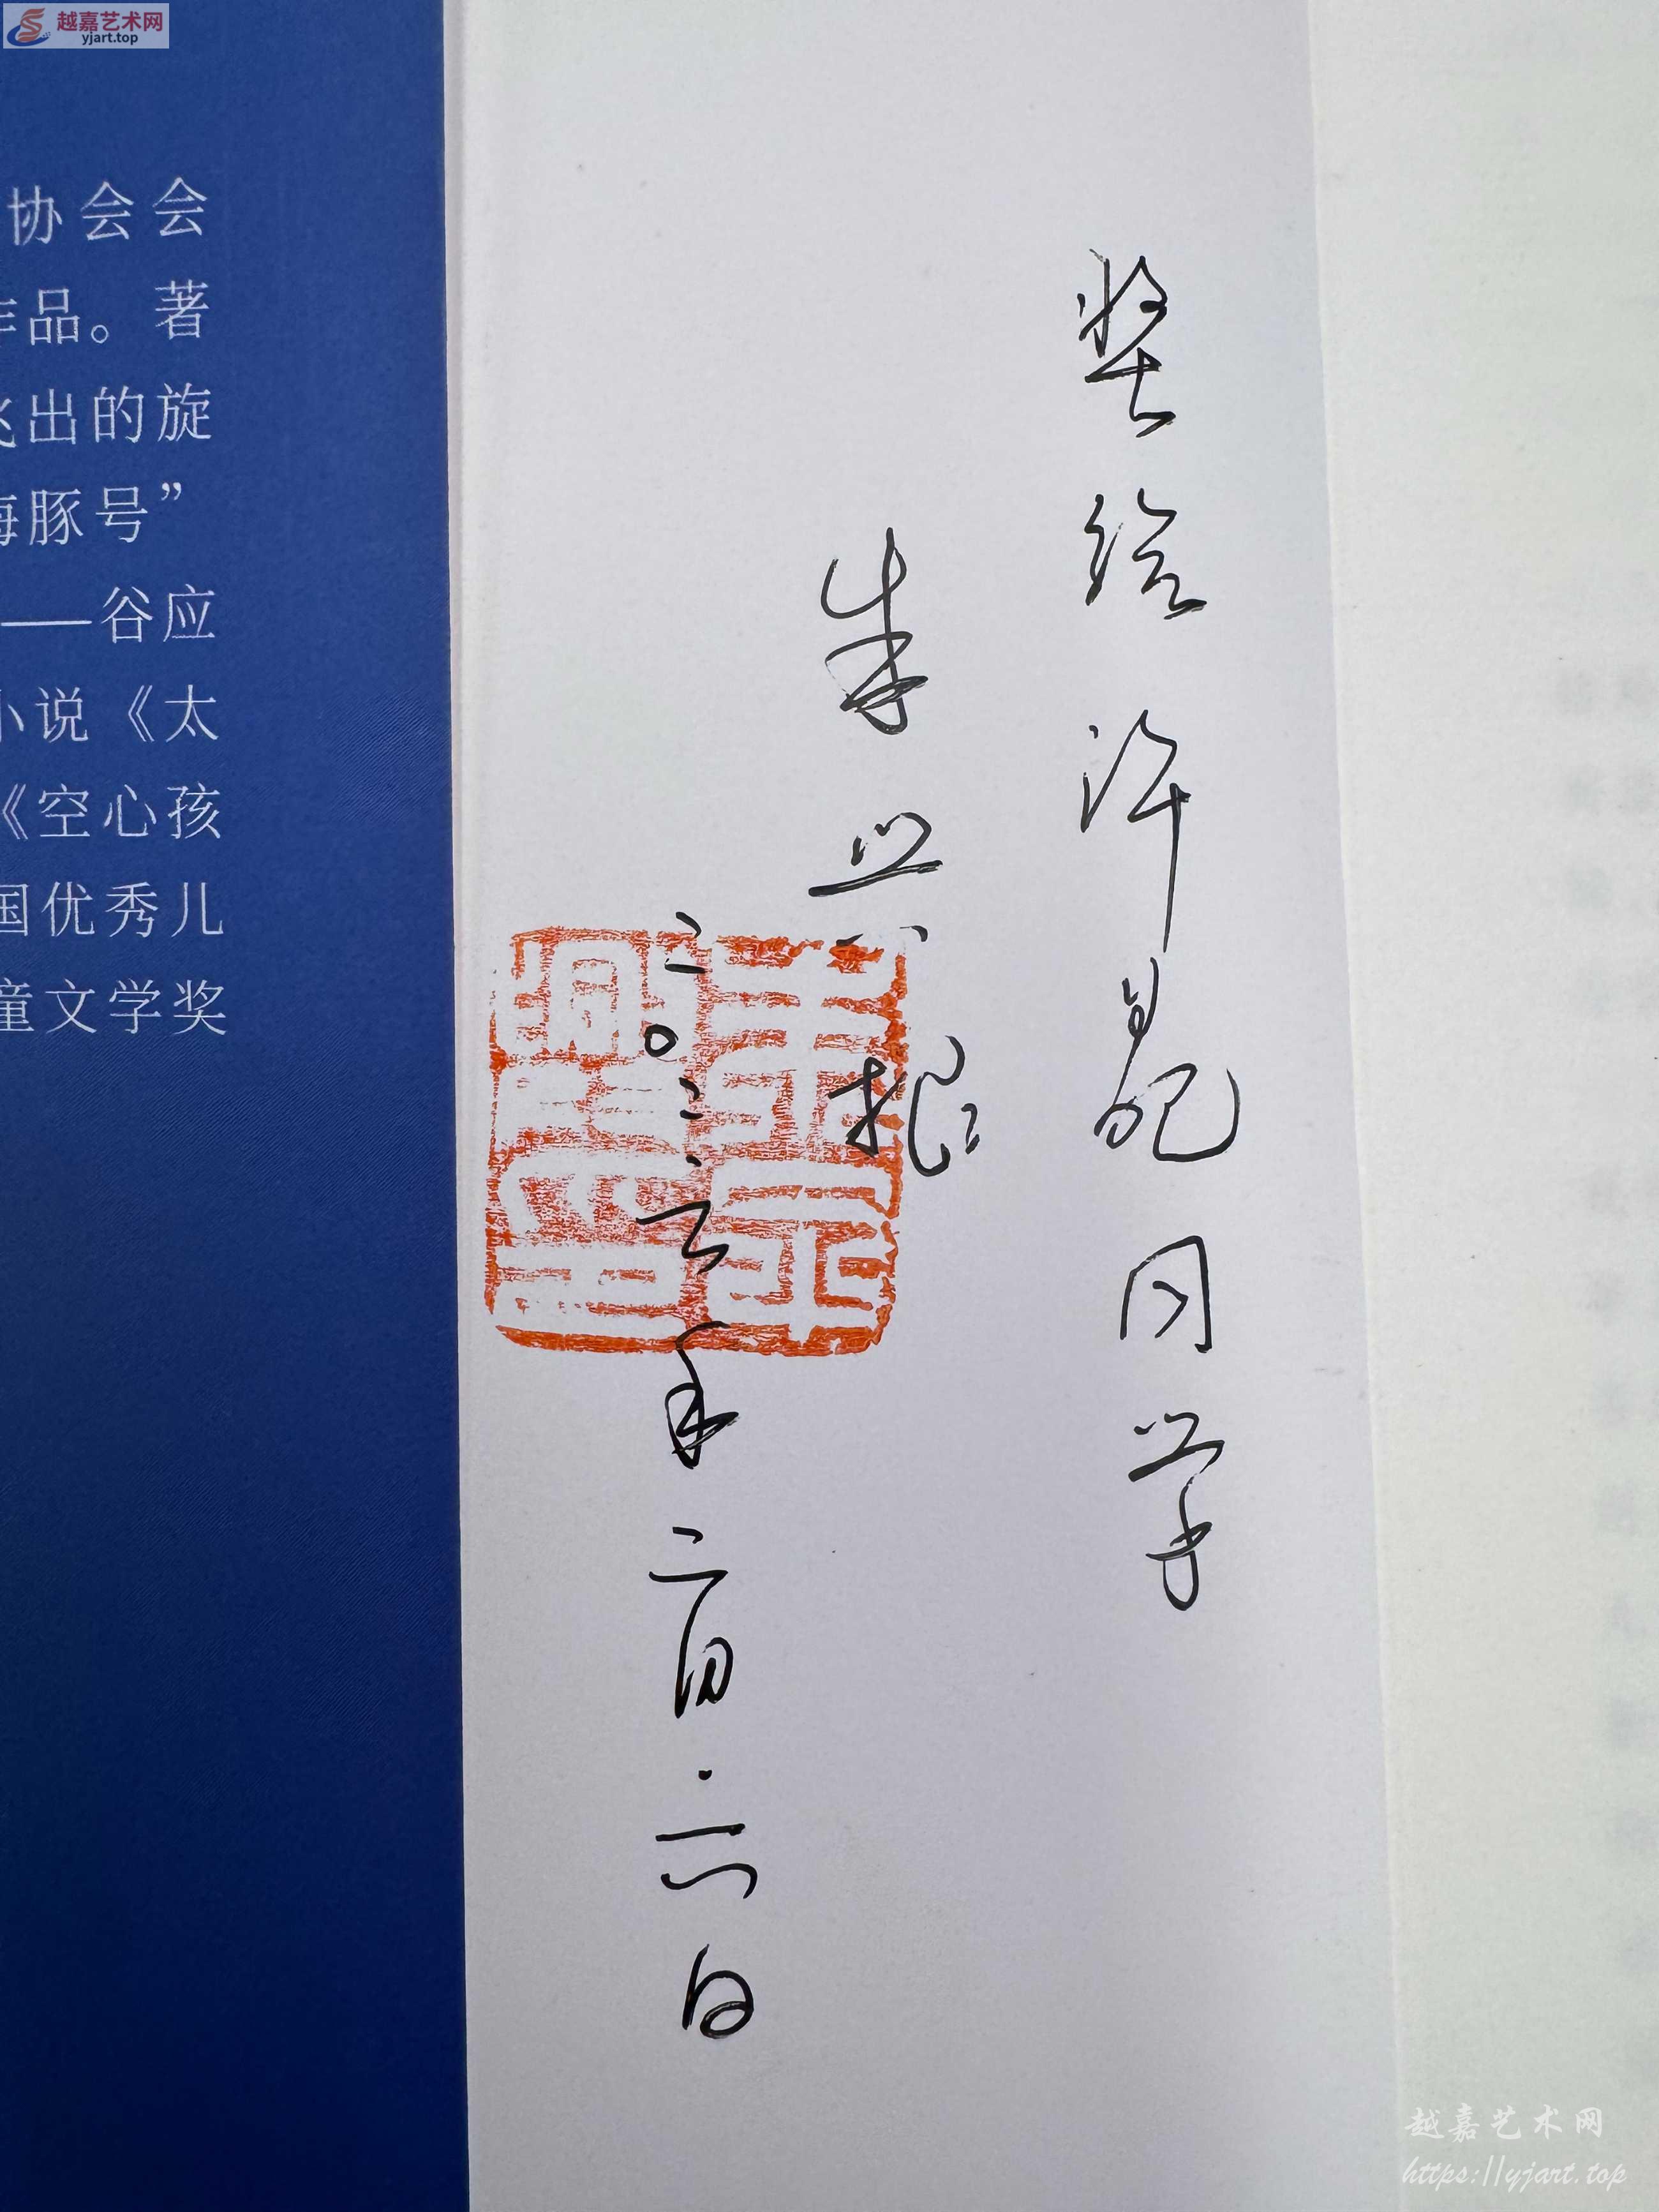 越嘉艺术网
yjart.top
协会会
作品。著
飞出的旋
海豚号”
——谷应
小说《太
《空心孩
国优秀儿
童文学奖
奖给许同学
朱兴根
二〇二三年二月六日
越嘉艺术网
https://yjart.top